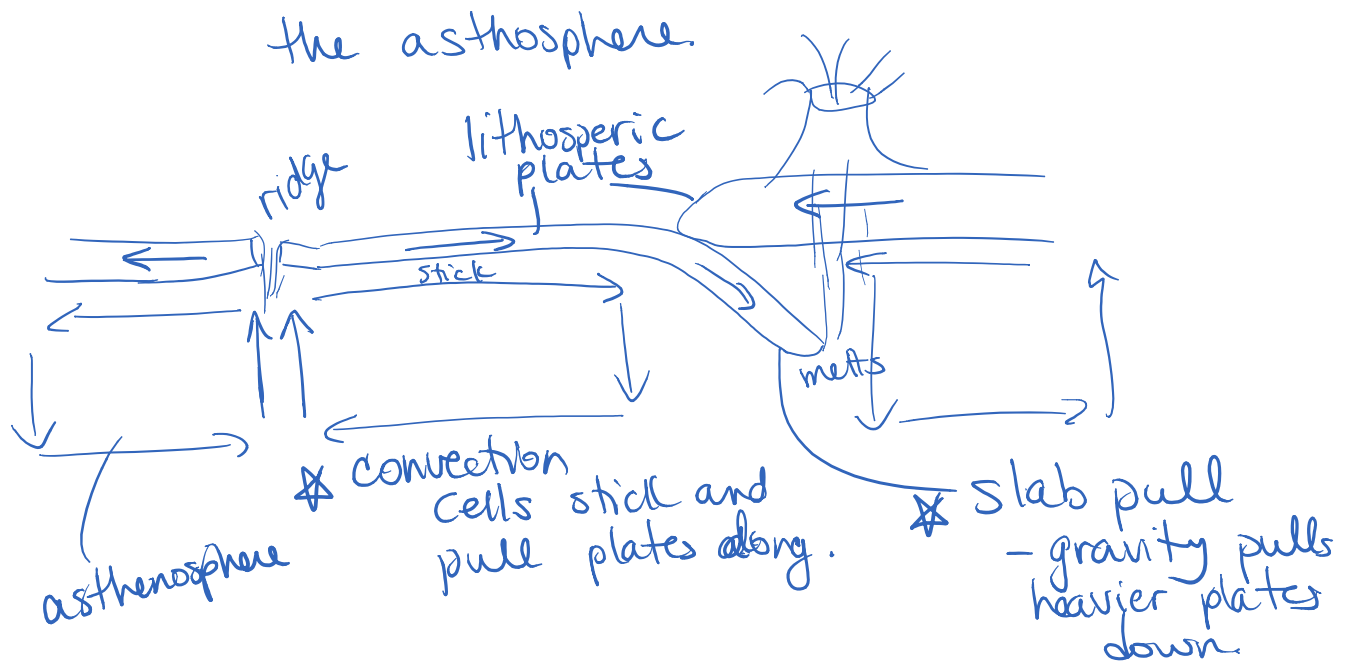 the asthosphere.
lithosperic
plates
ridge
stick
melts
convection
cells stick and
pull plates along.
slab pull
- gravity pulls
heavier plates
down.
asthenosphere